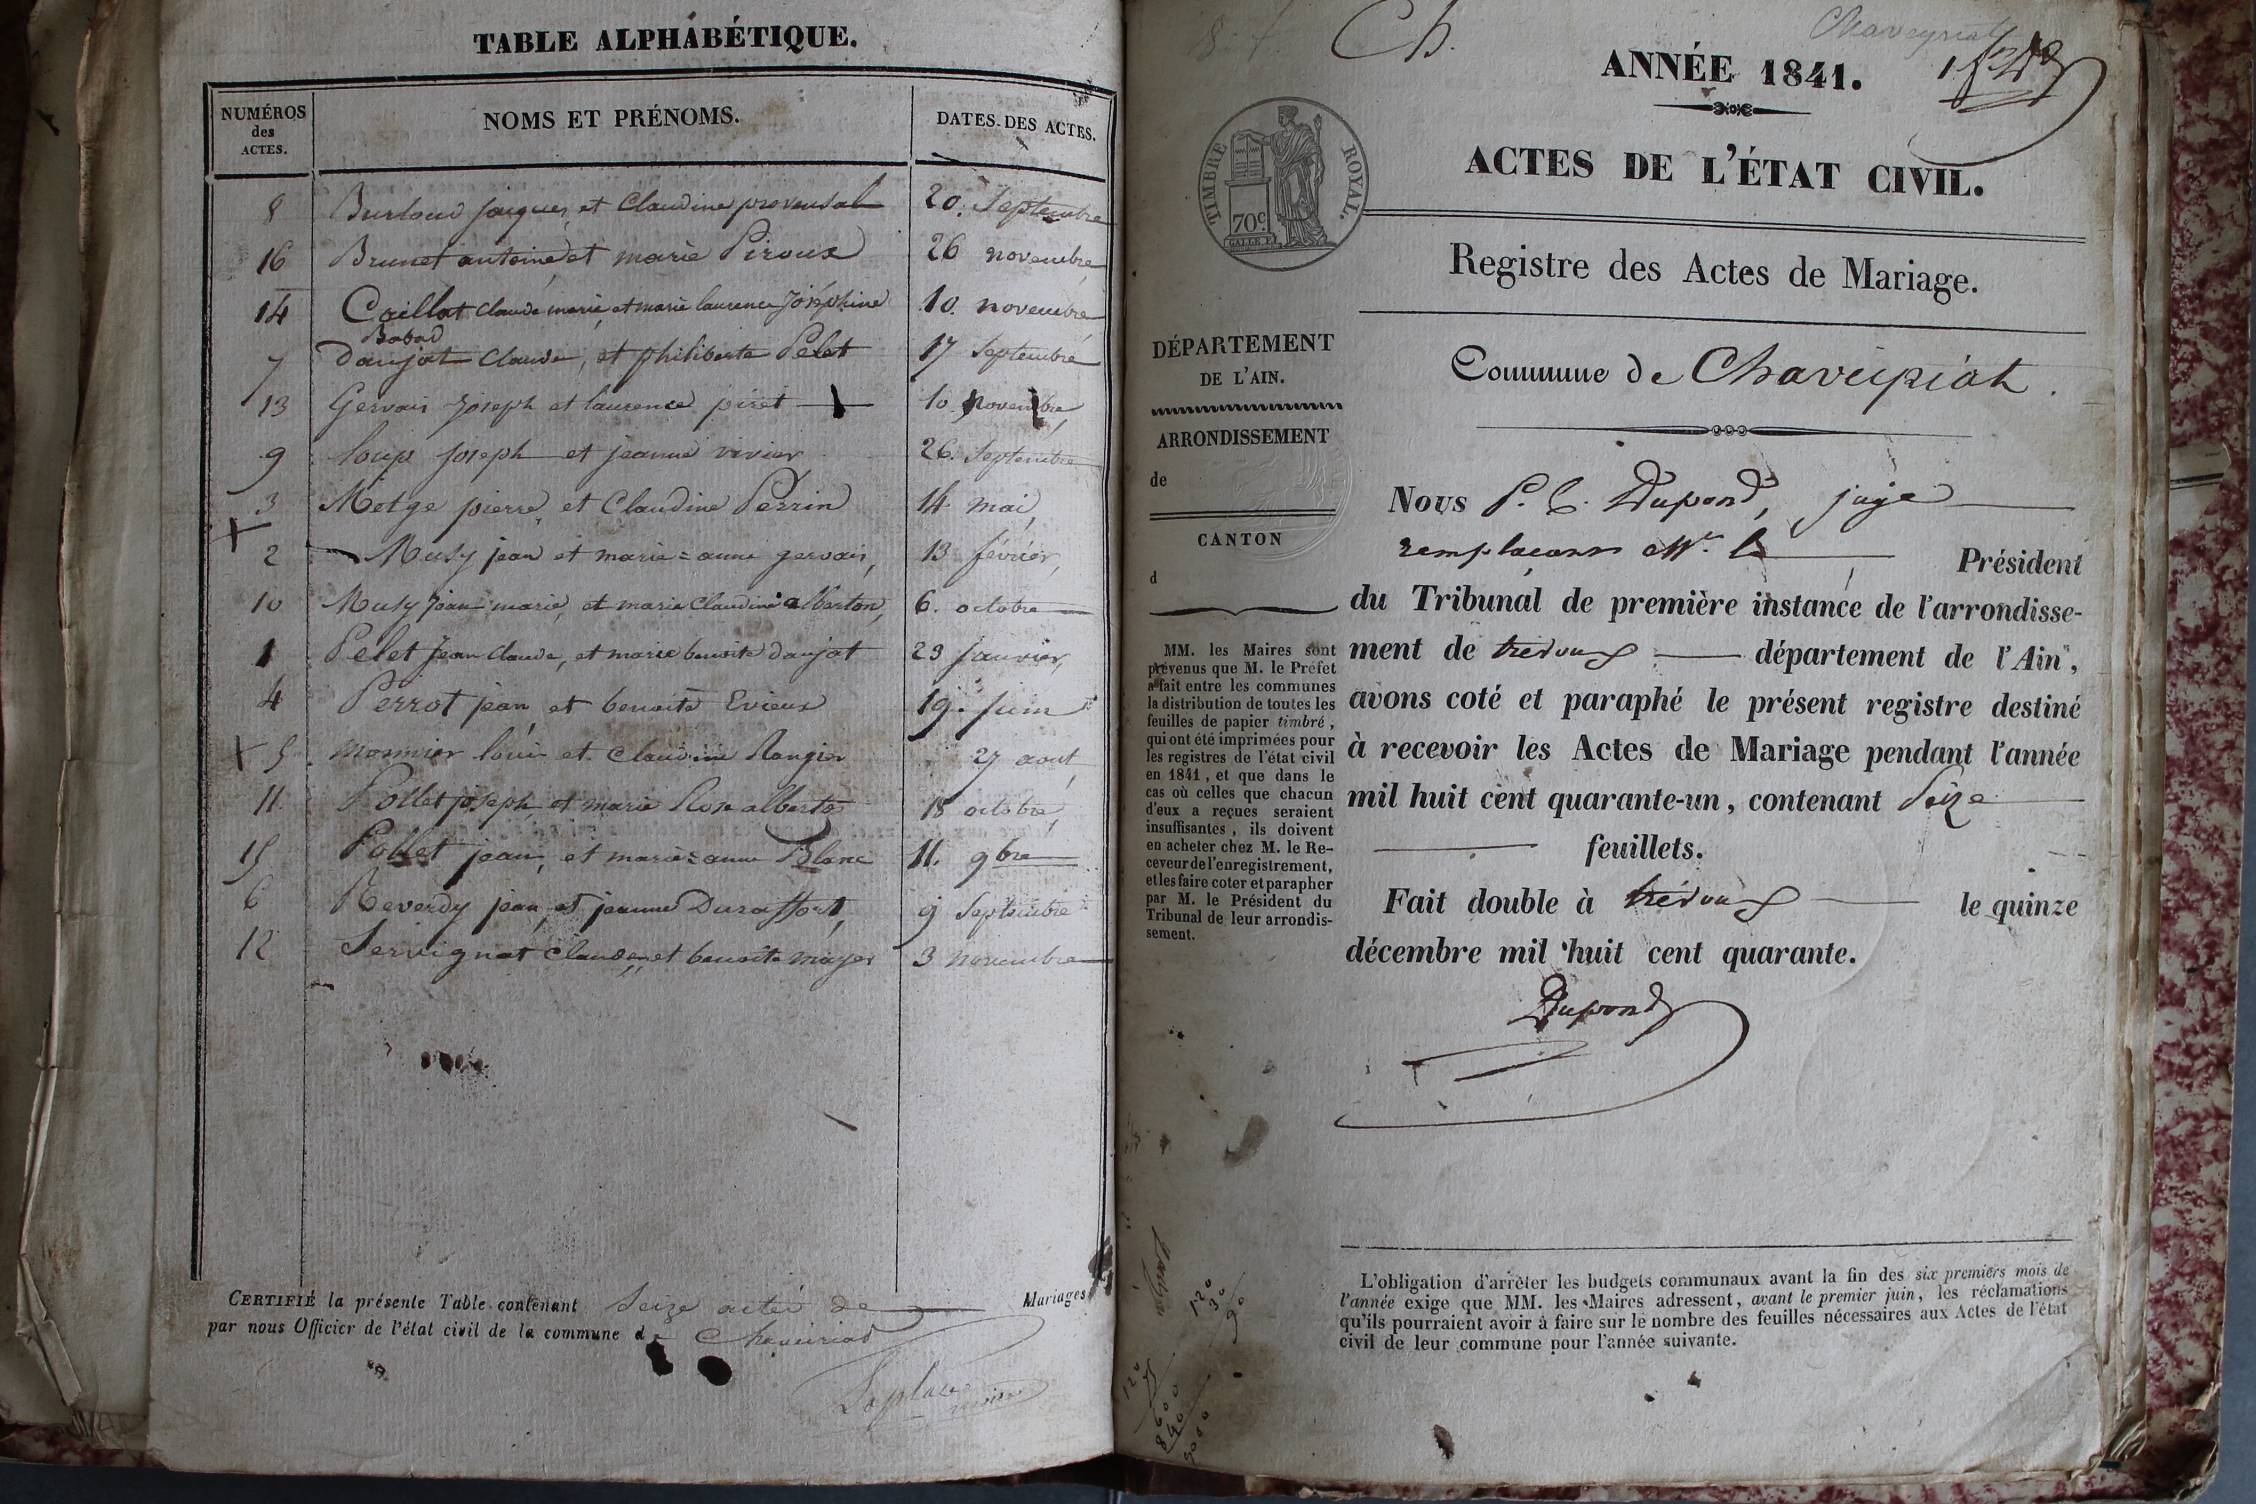 TABLE ALPHABÉTIQUE.
NUMÉROS des ACTES.
NOMS ET PRÉNOMS.
DATES DES ACTES.
8 Burloud jacques et Claudine provensal 20. Septembre
16 Brunet antoine et marie Piroux 26 novembre
14 Caillat Claude marie et marie laurence Joséphine 10. novembre
Babad
7 Daujat Claude, et philiberte Pelet 17 Septembre
13 Gervais Joseph et laurence piret 10 novembre
9 loup Joseph et jeanne vivier 26. Septembre
3 Metge pierre et Claudine Perrin 14 mai
2 Musy jean et marie=anne gervais, 13 février,
10 Musy Jean marie, et marie Claudine alberton, 6. octobre
1 Pelet Jean Claude, et marie benoite daujat 23 Janvier,
4 Perrot jean et benoite Evieux 19. Juin
5 monnier louis et Claudine Rangier 27 aout
11. Pollet joseph et marie Rose 18 octobre
15 Pollet jean, et marie=anne Blanc 11. 9bre
6 Reverdy jean et jeanne Duraffort, 9 Septembre
12 Servignat Claude et benoite mayer 3 novembre
CERTIFIÉ la présente Table contenant Seize actes de Mariages
par nous Officier de l'état civil de la commune de Chaveiriat
Laplace maire
Ch.
Chaveyriat
ANNÉE 1841.
TIMBRE ROYAL.
70c.
ACTES DE L'ÉTAT CIVIL.
Registre des Actes de Mariage.
DÉPARTEMENT
DE L'AIN.
ARRONDISSEMENT
de
CANTON
d
MM. les Maires sont
prévenus que M. le Préfet
a fait entre les communes
la distribution de toutes les
feuilles de papier timbré,
qui ont été imprimées pour
les registres de l'état civil
en 1841, et que dans le
cas où celles que chacun
d'eux a reçues seraient
insuffisantes, ils doivent
en acheter chez M. le Re-
ceveur de l'enregistrement,
et les faire coter et parapher
par M. le Président du
Tribunal de leur arrondis-
sement.
Commune de Chaveiriat.
Nous P. C. Dupond, juge
remplaçant Mr. le Président
du Tribunal de première instance de l'arrondisse-
ment de trévoux département de l'Ain,
avons coté et paraphé le présent registre destiné
à recevoir les Actes de Mariage pendant l'année
mil huit cent quarante-un, contenant Seize
feuillets.
Fait double à trévoux le quinze
décembre mil huit cent quarante.
Dupond
L'obligation d'arrêter les budgets communaux avant la fin des six premiers mois de
l'année exige que MM. les Maires adressent, avant le premier juin, les réclamations
qu'ils pourraient avoir à faire sur le nombre des feuilles nécessaires aux Actes de l'état
civil de leur commune pour l'année suivante.